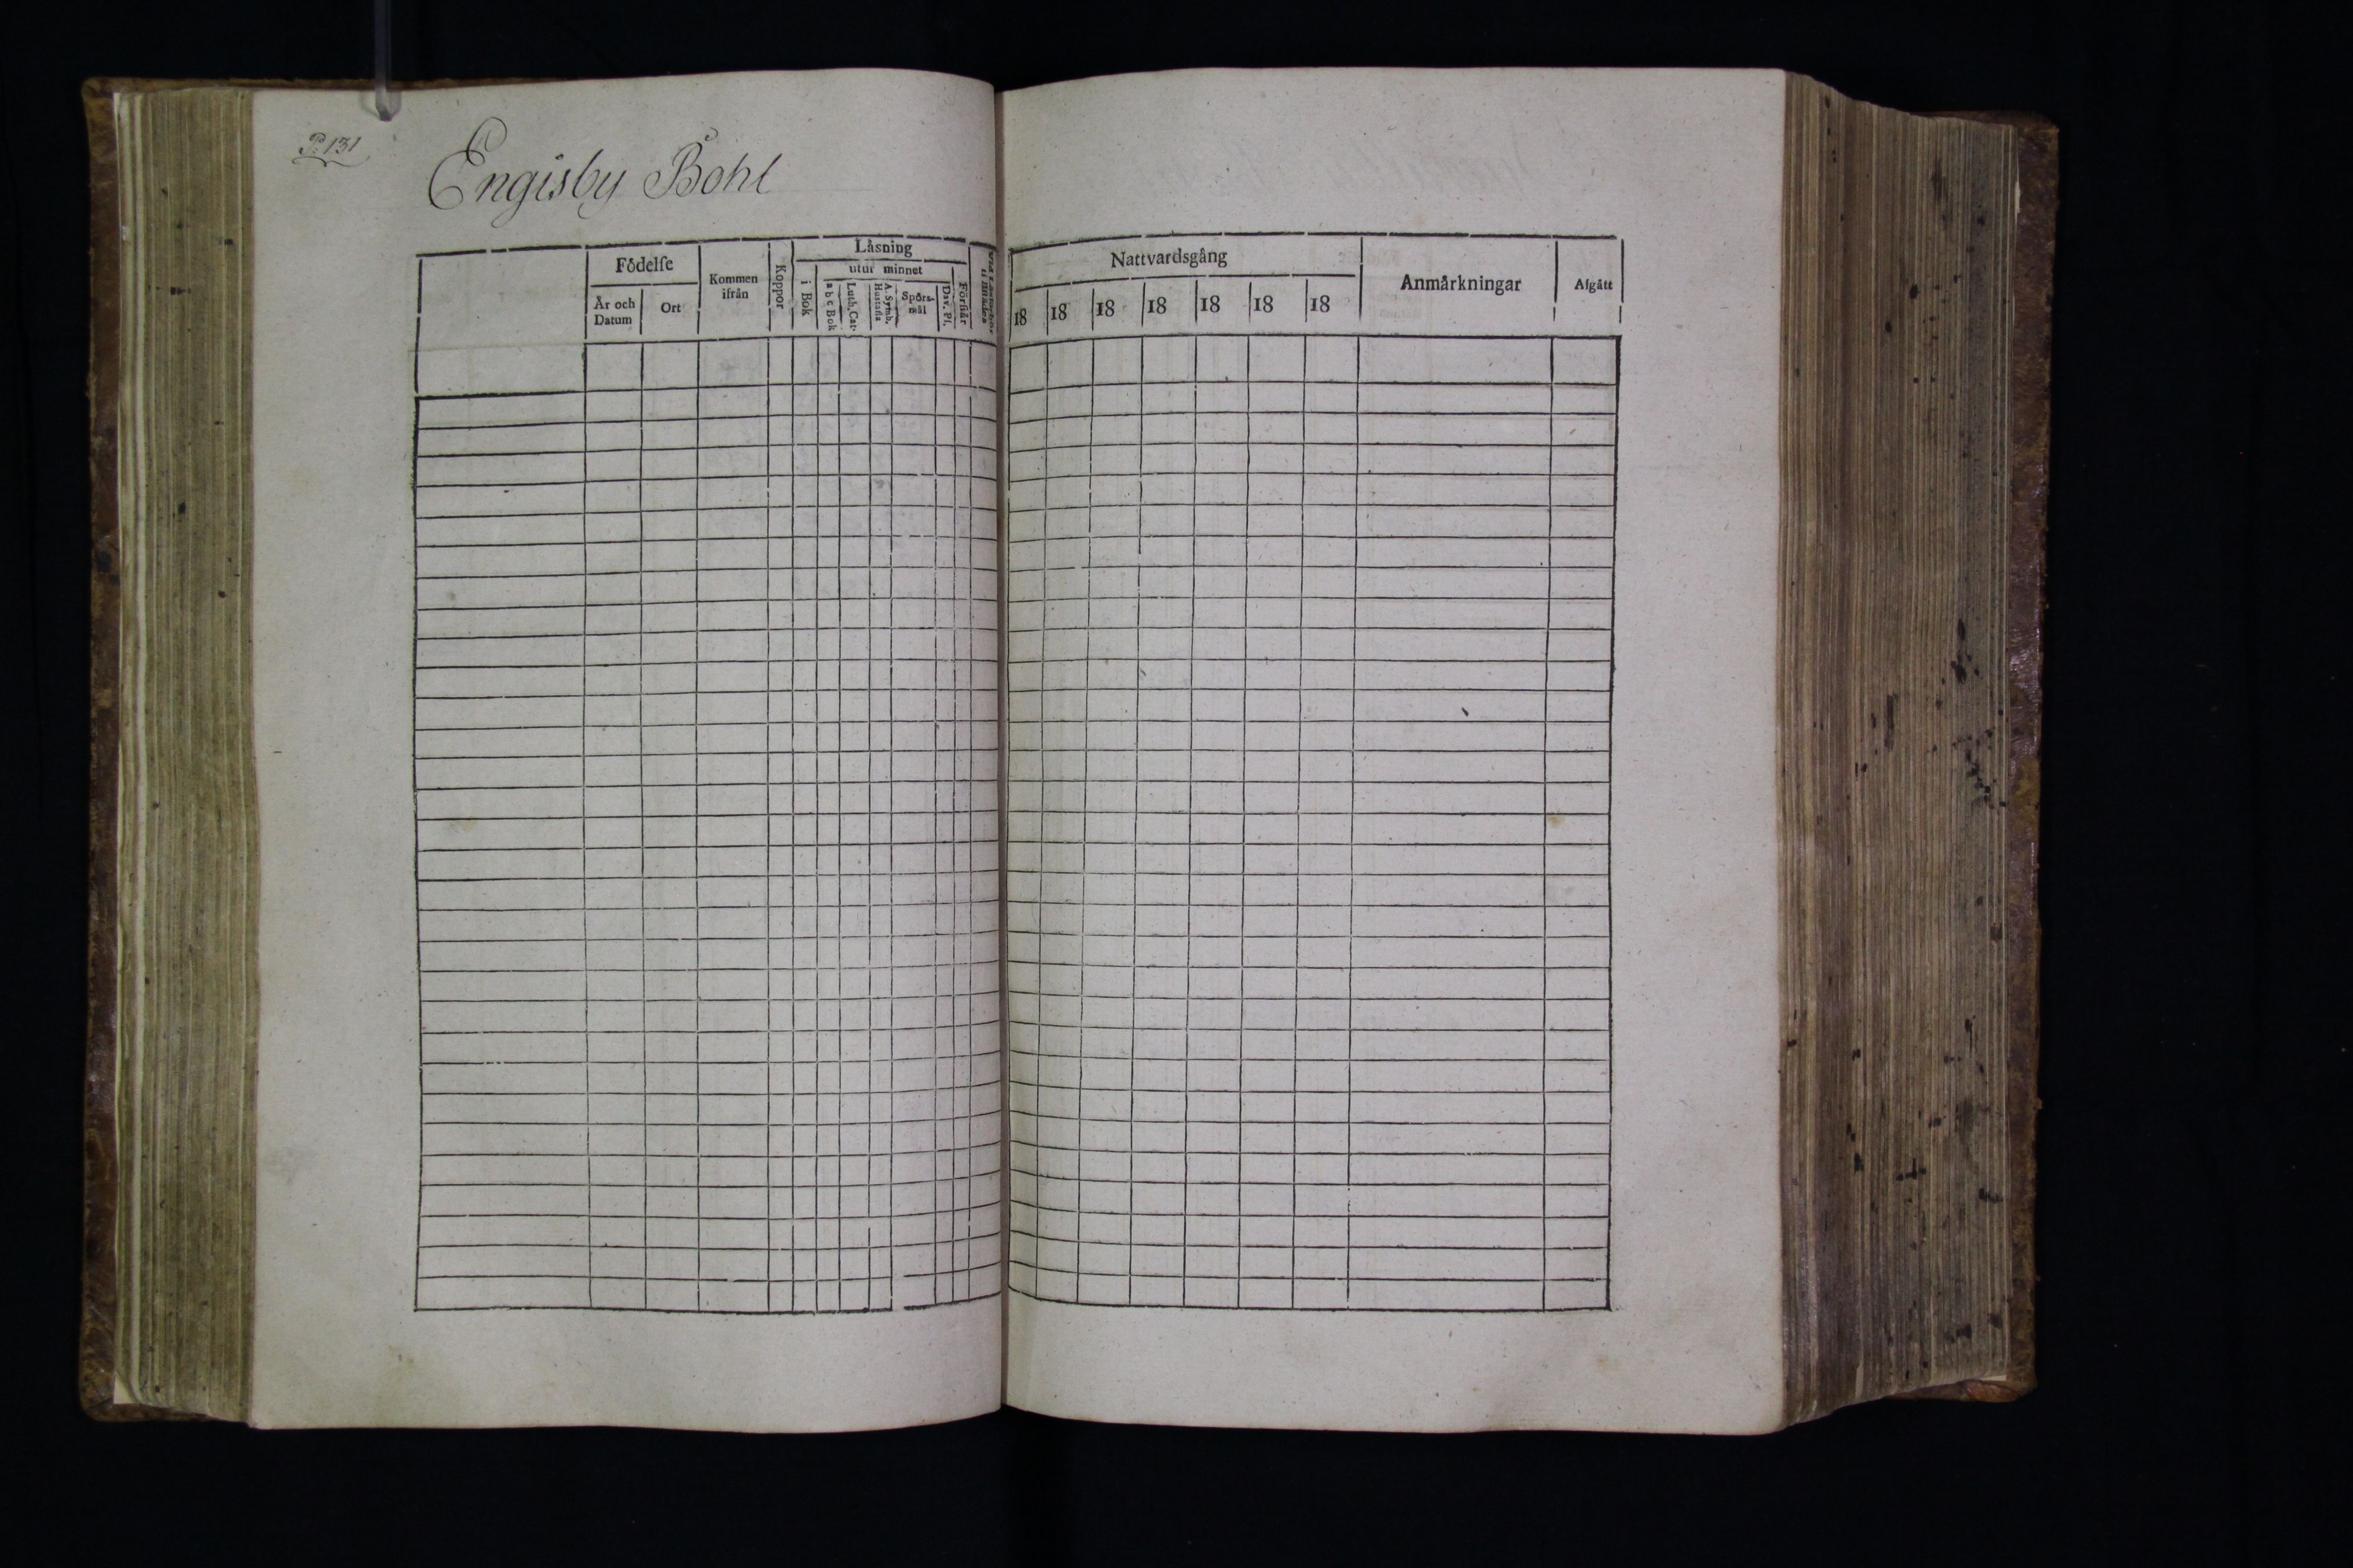 P. 131
Engisby Bohl
Födelse
År och Datum
Ort
Kommen ifrån
Koppor
Låsning
i Bok
utur minnet
a b c Bok
Luth. Cat.
A. Symb. Hustafla
Spörs-mål
Dav. Ps.
Förstår
Nattvardsgång
18 18 18 18 18 18 18
Anmårkningar
Afgått